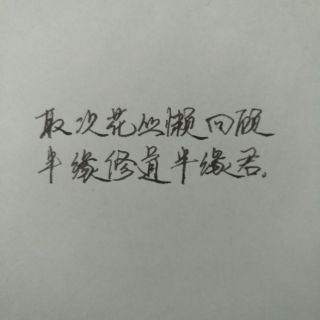 取次花丛懒回顾
半缘修道半缘君.